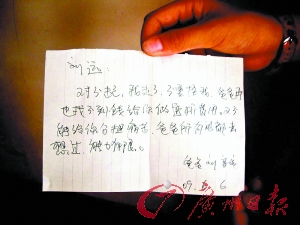 刘远:
对不起,我走了,不要怪我,爸爸再
也找不到钱给你做透析费用。又不
能给你分担痛苦,爸爸所有地都去
想过,能力有限。
爸爸 刘
09. 5. 6
广州日报